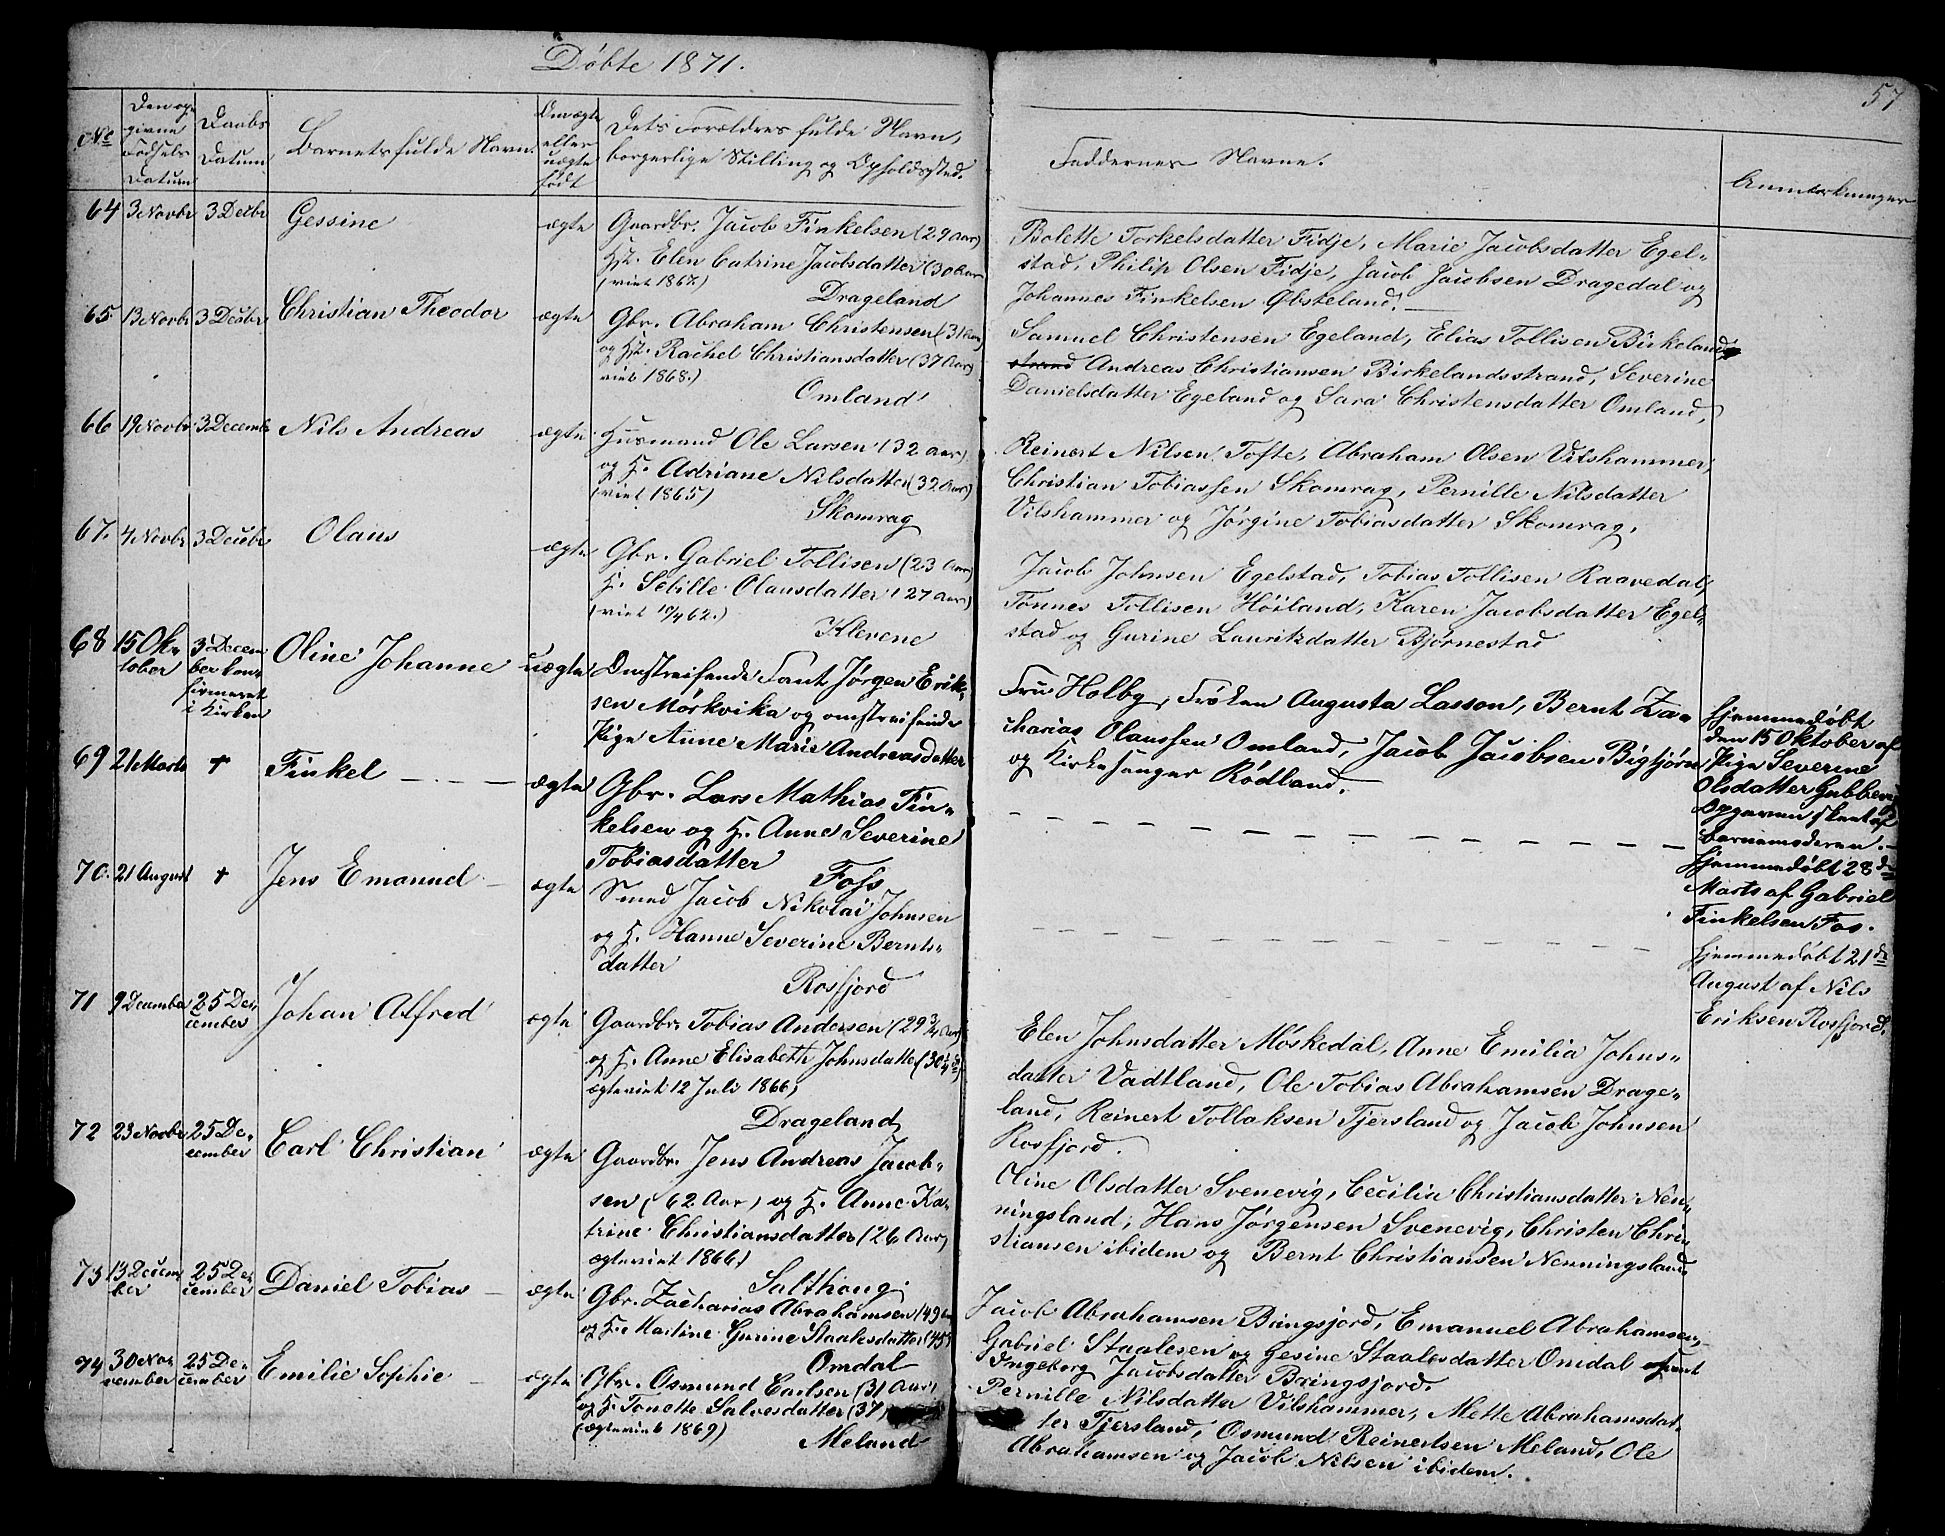 Döbte 1871.
57
No
Den op-
givne
Födsels
Datum
Daabs
Datum
Barnets fulde Navn.
Om ægte
eller
uægte
födt
Dets Forældres fulde Navn,
borgerlige Stilling og Opholdssted.
Faddernes Navne.
Anmærkninger
64 3 Novbr 3 Decbr Gessine ægte Gaardbr. Jacob Finkelsen (29 Aar)
Elen Catrine Jacobsdatter (30 Aar
(viet 1867.)
Drageland
Bolette Torkelsdatter Fidje, Marie Jacobsdatter Egel-
stad, Philip Olsen Fidje, Jacob Jacobsen Dragedal og
Johannes Finkelsen Öbsteland.
65 13 Novbr 3 Decbr Christian Theodor ægte Gbr. Abraham Christensen (31 Aar)
og Hst. Rachel Christiansdatter (37 Aar)
viet 1868.)
Omland
Samuel Christensen Egeland, Elias Tollisen Birkeland,
strand Andreas Christiansen Birkelandsstrand, Severine
Danielsdatter Egeland og Sara Christensdatter Omland,
66 19 Novbr 3 Decembr Nils Andreas ægte Husmand Ole Larsen (32 Aar)
og H. Adriane Nilsdatter (32 Aar)
(viet 1865)
Skomrag
Reinert Nilsen Tofte, Abraham Olsen Vilshammer,
Christian Tobiassen Skomrag, Pernille Nilsdatter
Vilshammer og Jörgine Tobiasdatter Skomrag.
67. 4 Novbr 3 Decbr Olaus ægte Gbr. Gabriel Tollisen (23 Aar)
H. Sebille Olausdatter (27 Aar)
Klevene
Jacob Johnsen Egelstad, Tobias Tollisen Raavedal,
Tönnes Tollisen Höiland, Karen Jacobsdatter Egel-
stad og Gurine Lauritzdatter Björnestad
68 15 Ok-
tober
3 Decem
ber kon-
firmeret
i Kirken
Oline Johanne uægte Omstreifende Fant Jörgen Erik-
sen Mörkvika og omstreifende
Pige Anne Marie Andreasdatter
Fru Holby, Fröken Augusta Lasson, Bernt Za-
charias Olaussen Omland, Jacob Jacobsen Bigtjörn
og Kirkesanger Rödland.
Hjemmedöbt
den 15 Oktober af
Pige Severine
Olsdatter Gubberg
Opgaven skeet af
barnemoderen.
69 21 Marts + Finkel ægte Gbr. Lars Mathias Fin-
kelsen og H. Anne Severine
Tobiasdatter
Foss
Hjemmedöbt 28de
Marts af Gabriel
Finkelsen Fos.
70. 21 August + Jens Emanuel ægte Smed Jacob Nikolai Johnsen
og H. Hanne Severine Bernts-
datter
Rosfjord
Hjemmedöbt 21de
August af Nils
Eriksen Rosfjord.
71 9 December 25 De-
cember
Johan Alfred ægte Gaardbr. Tobias Andersen (29 3/4 Aar)
og H. Anne Elisabeth Johnsdatter (30 1/4
ægteviet 12 Juli 1866)
Drageland
Elen Johnsdatter Möskedal, Anne Emilia Johns-
datter Vadtland, Ole Tobias Abrahamsen Drage-
land, Reinert Tollaksen Tjersland og Jacob Johnsen
Rosfjord.
72 23 Novbr 25 De-
cember
Carl Christian ægte Gaardbr. Jens Andreas Jacob-
sen (62 Aar) og H. Anne Ka-
trine Christiansdatter (26 Aar)
ægteviet 1866)
Salthoug
Oline Olsdatter Svenevig, Cecilia Christiansdatter Nen-
ningsland, Hans Jörgensen Svenevig, Christen Chri-
stiansen ibidem og Bernt Christiansen Nenningsland.
73 13 Decem
ber
25 De-
cember
Daniel Tobias ægte Gbr. Zacharias Abrahamsen (49
og H. Martine Gurine Staalesdatter (45)
Omdal
Jacob Abrahamsen Bringsjord, Emanuel Abrahamsen,
Gabriel Staalesen og Gesine Staalesdatter Omdal samt
Ingeborg Jacobsdatter Bringsjord.
74 30 No-
vember
25 De-
cember
Emilie Sophie ægte Gbr. Osmund Carlsen (31 Aar)
og H. Tonette Salvesdatter (37)
(ægteviet 1869)
Meland
Pernille Nilsdatter Vilshammer, Mette Abrahamsdat-
ter Tjersland, Osmund Reinertsen Meland, Ole
Abrahamsen og Jacob Nilsen ibidem.